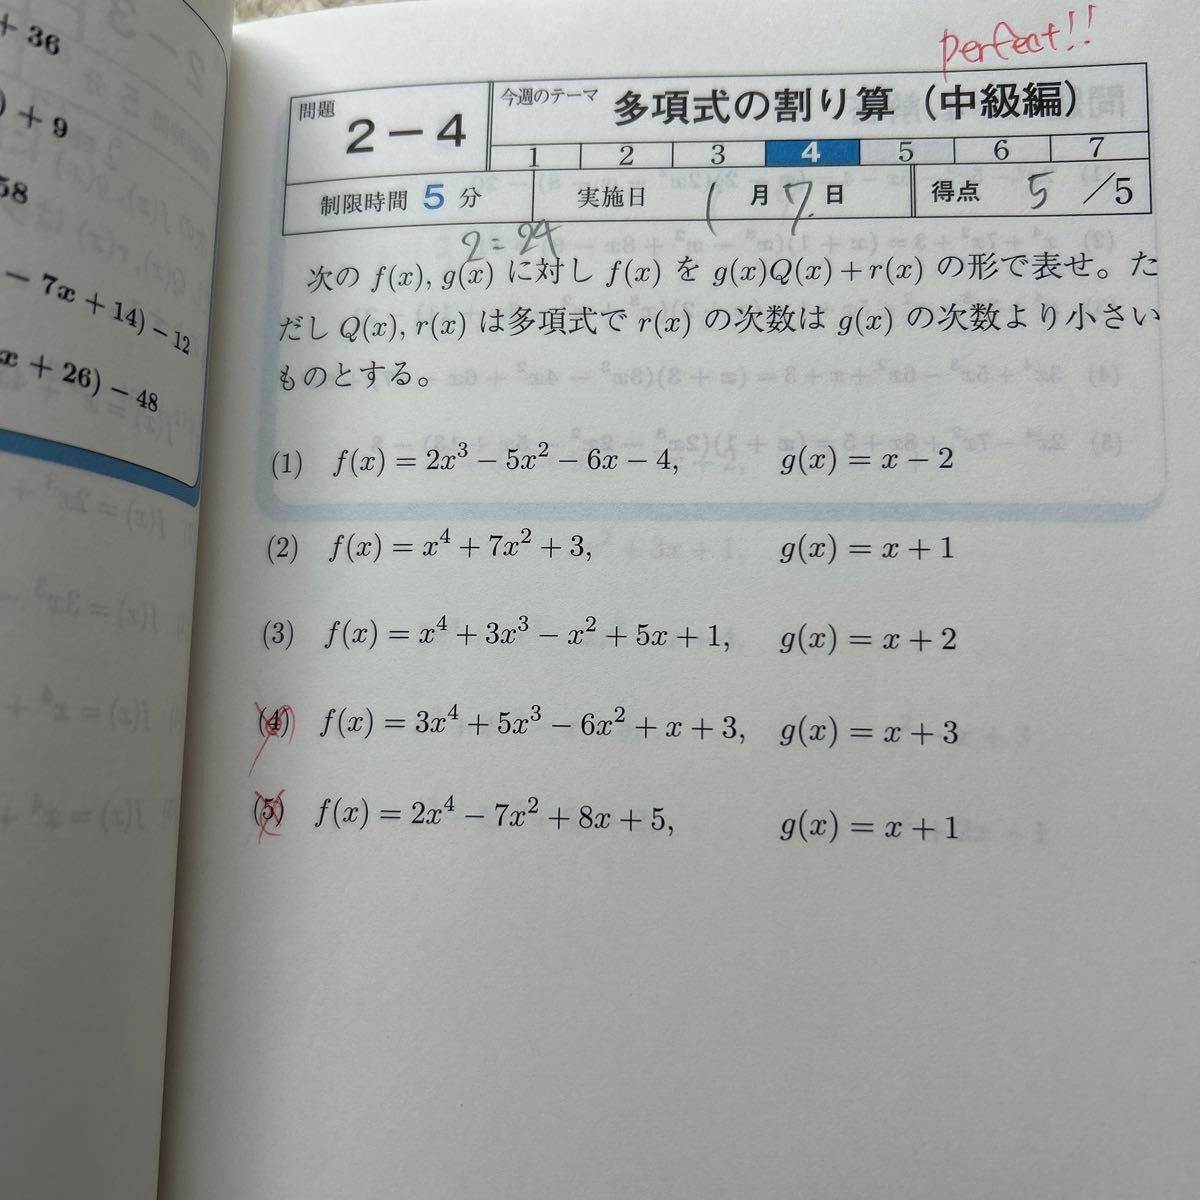 + 36
) + 9
58
− 7x + 14) − 12
x + 26) − 48
perfect!!
問題 2－4
今週のテーマ 多項式の割り算（中級編）
1 2 3 4 5 6 7
制限時間 5 分 実施日 1 月 7 日 得点 5 /5
次の f(x), g(x) に対し f(x) を g(x)Q(x) + r(x) の形で表せ。た
だし Q(x), r(x) は多項式で r(x) の次数は g(x) の次数より小さい
ものとする。
(1) f(x) = 2x³ − 5x² − 6x − 4, g(x) = x − 2
(2) f(x) = x⁴ + 7x² + 3, g(x) = x + 1
(3) f(x) = x⁴ + 3x³ − x² + 5x + 1, g(x) = x + 2
(4) f(x) = 3x⁴ + 5x³ − 6x² + x + 3, g(x) = x + 3
(5) f(x) = 2x⁴ − 7x² + 8x + 5, g(x) = x + 1